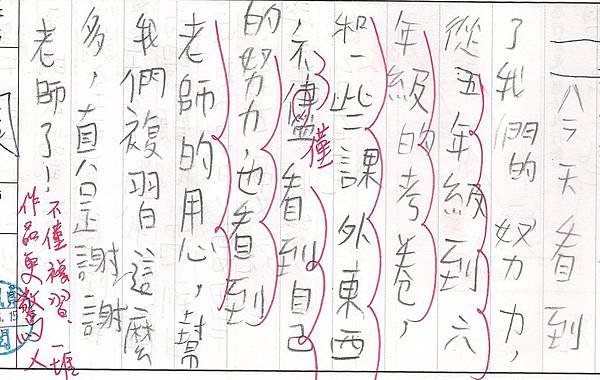 今天看到
了我們的努力，
從五年級到六
年級的考卷，
和一些課外東西
，不儘看到自己
僅
的努力，也看到
老師的用心，幫
我們複習這麼
多，真是謝謝
老師了！
不僅複習一堆
作品更驚人